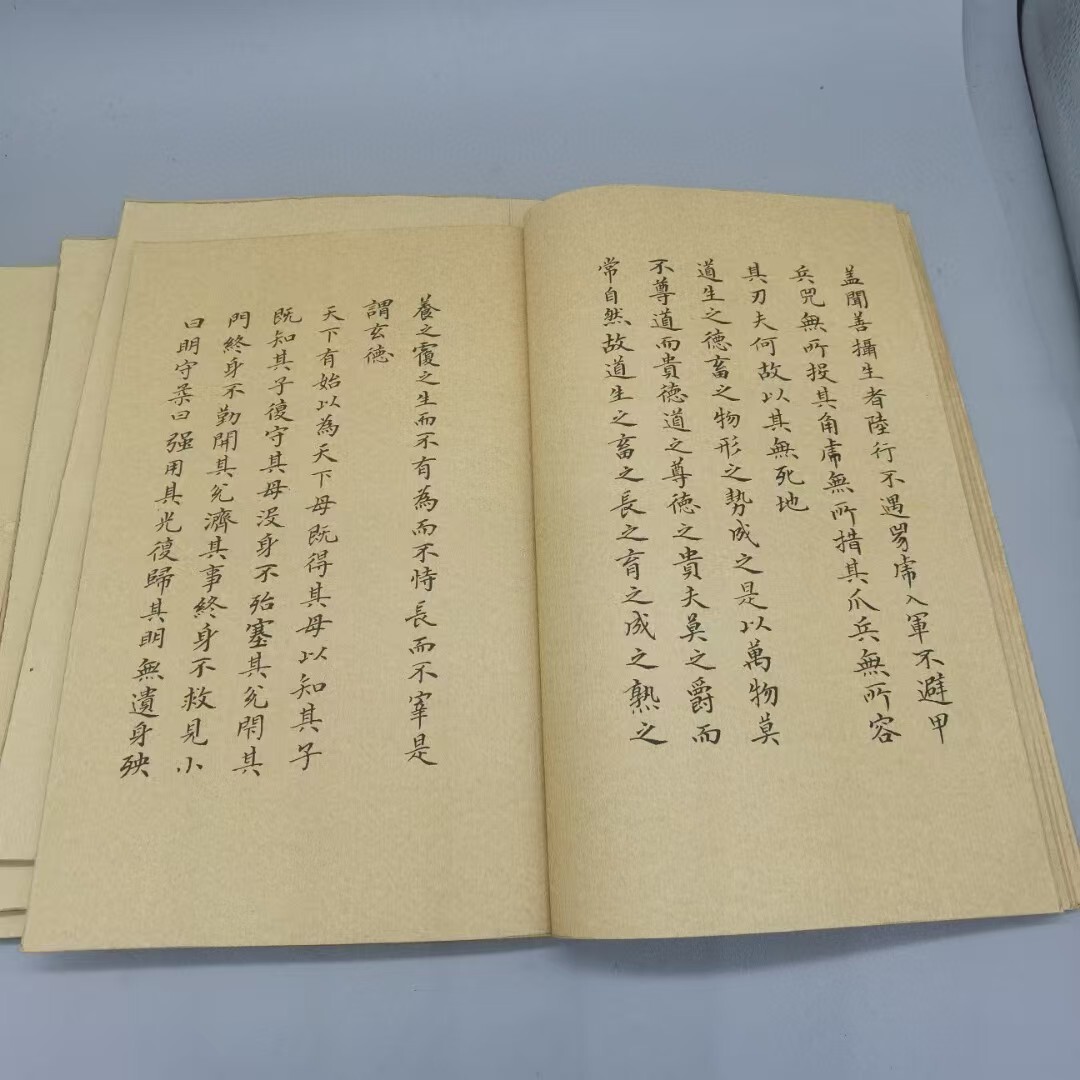 蓋聞善攝生者陸行不遇兕虎入軍不避甲
兵兕無所投其角虎無所措其爪兵無所容
其刃夫何故以其無死地
道生之德畜之物形之勢成之是以萬物莫
不尊道而貴德道之尊德之貴夫莫之爵而
常自然故道生之畜之長之育之成之熟之
養之覆之生而不有為而不恃長而不宰是
謂玄德
天下有始以為天下母既得其母以知其子
既知其子復守其母没身不殆塞其兌閉其
門終身不勤開其兌濟其事終身不救見小
曰明守柔曰强用其光復歸其明無遺身殃